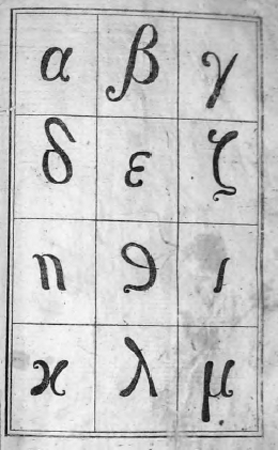 α β γ
δ ε ζ
η ϑ ι
ϰ λ μ